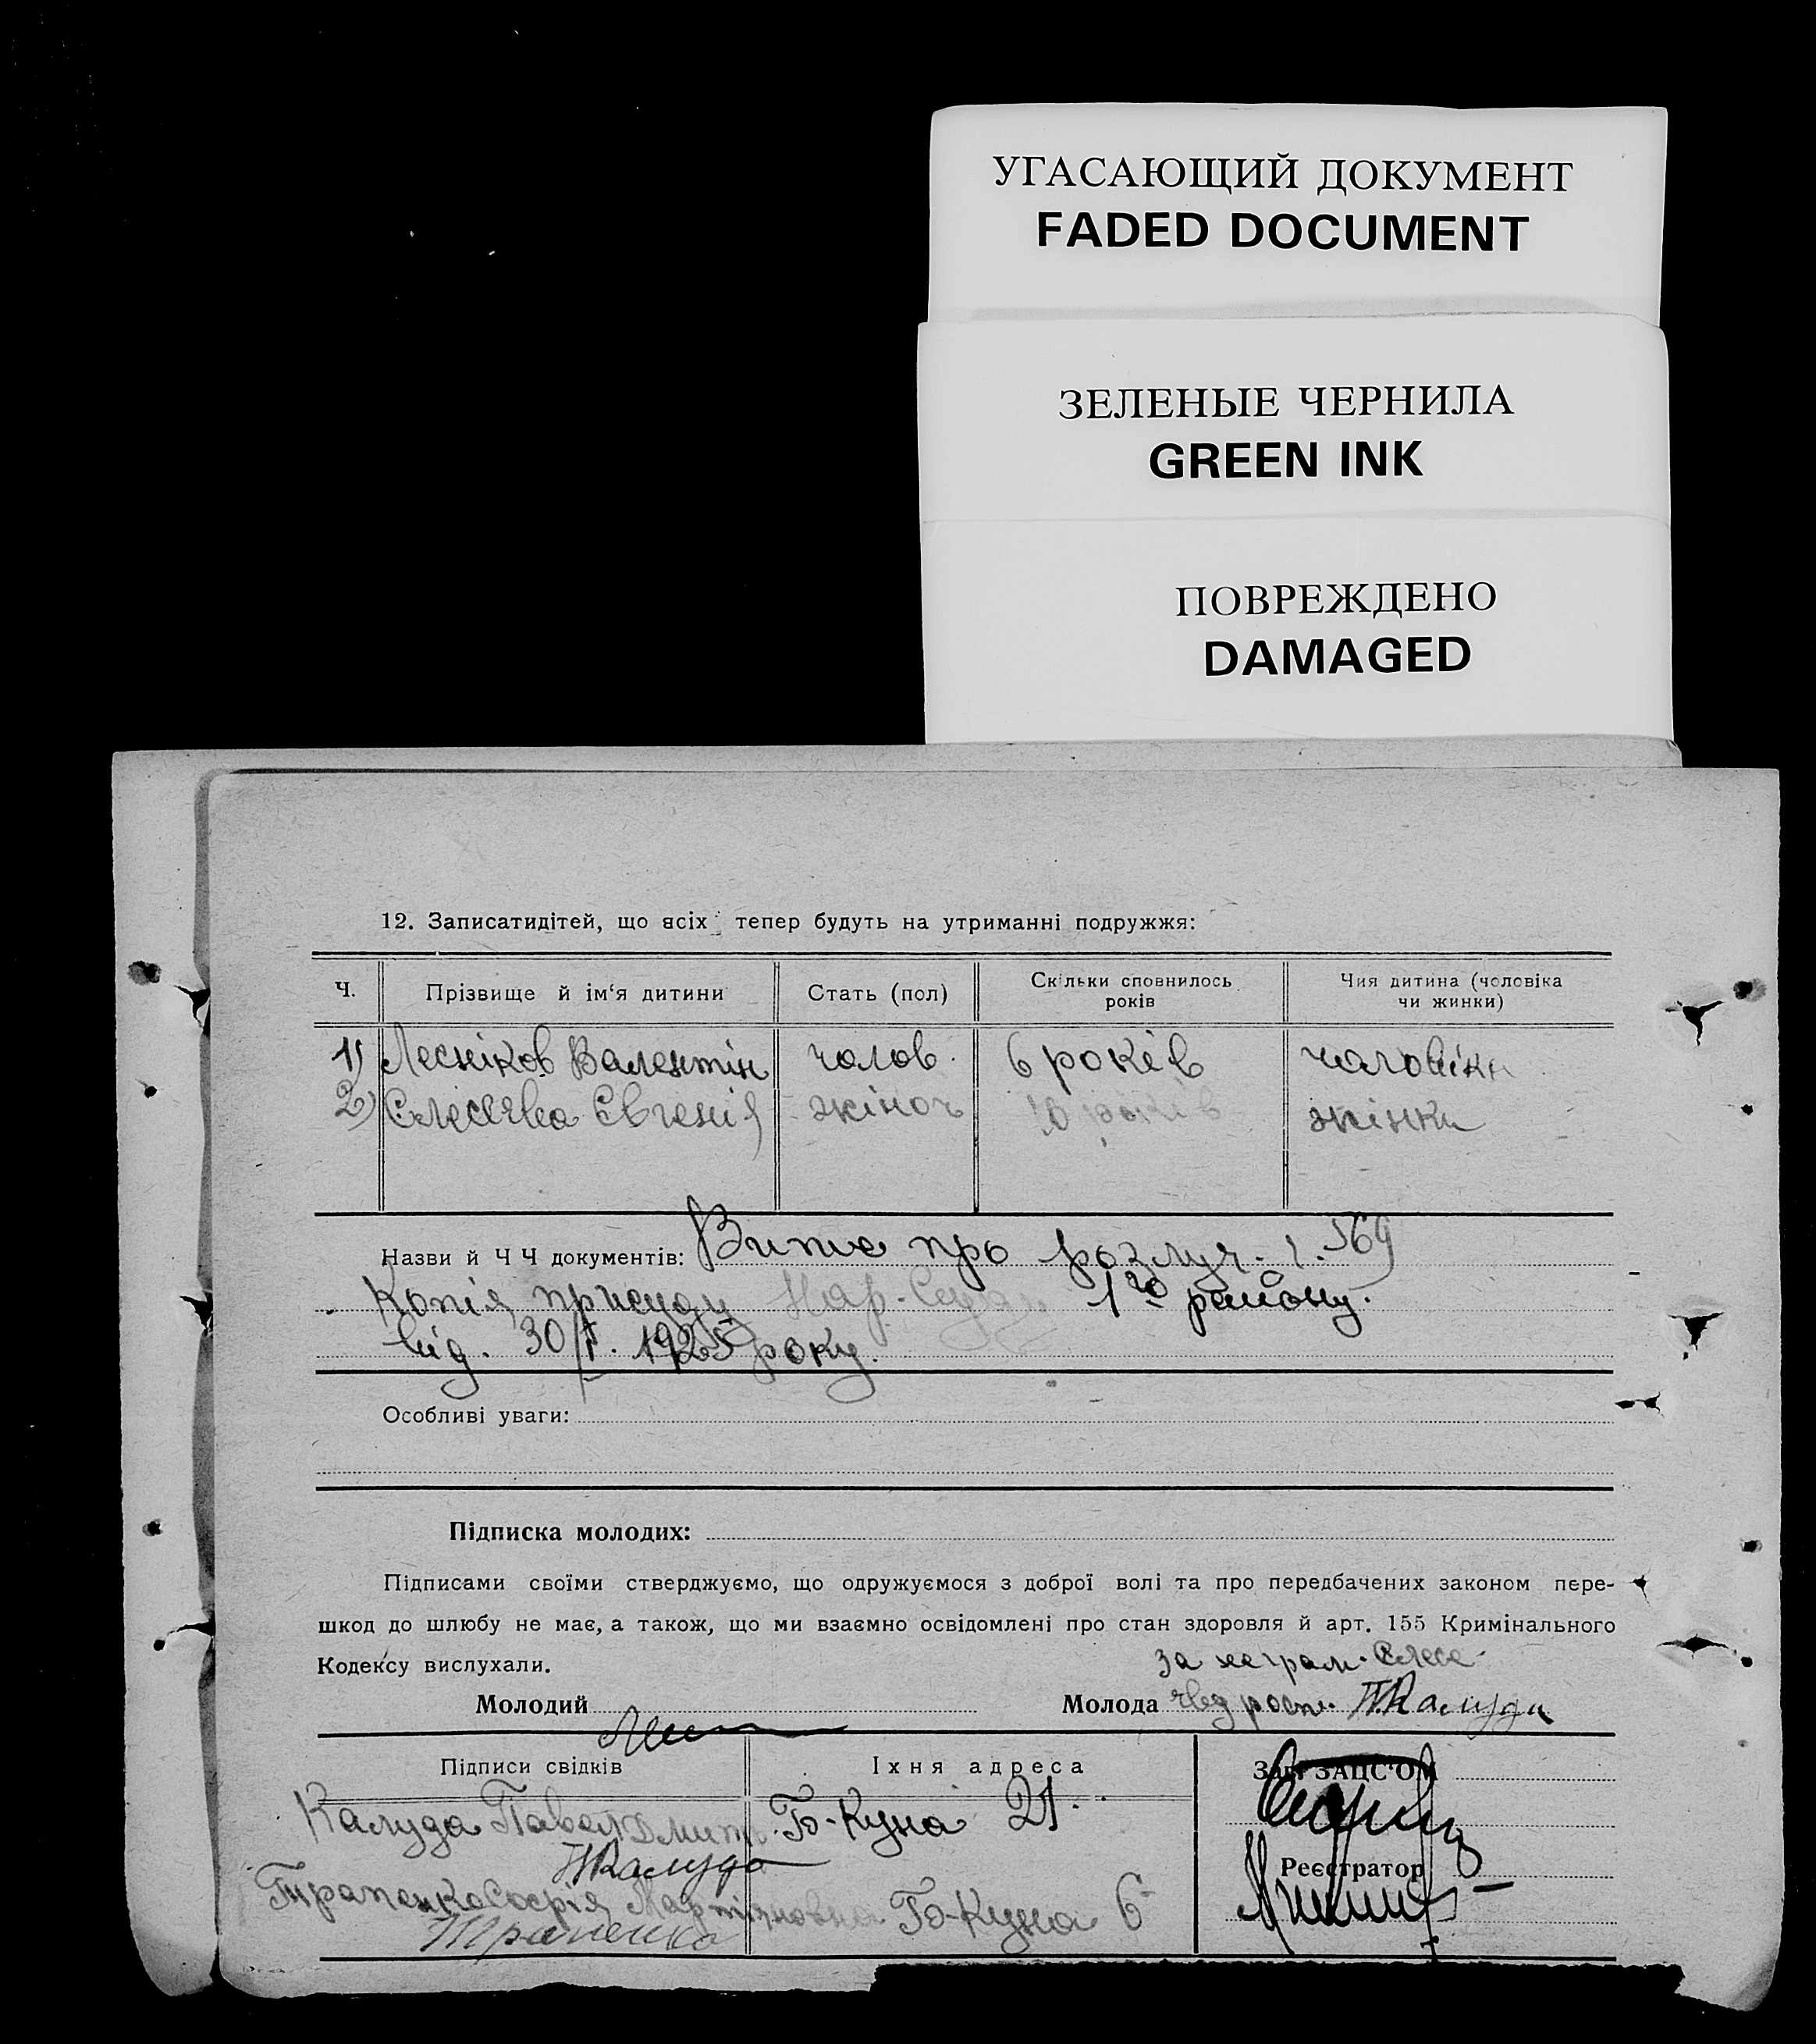 УГАСАЮЩИЙ ДОКУМЕНТ
FADED DOCUMENT
ЗЕЛЕНЫЕ ЧЕРНИЛА
GREEN INK
ПОВРЕЖДЕНО
DAMAGED
12. Записатидітей, що всіх тепер будуть на утриманні подружжя:
Ч. Прізвище й ім'я дитини Стать (пол) Скільки сповнилось років Чия дитина (чоловіка чи жинки)
1) Лесніков Валентін чолов. 6 років чоловіка
2) Євгенія жіноч 10 років жінки
Назви й Ч Ч документів: про розлуч. 569
Копія присуду Нар-Суда 1го району.
від. 30/ 1925 року.
Особливі уваги:
Підписка молодих:
Підписами своїми стверджуємо, що одружуємося з доброї волі та про передбачених законом пере-
шкод до шлюбу не має, а також, що ми взаємно освідомлені про стан здоровля й арт. 155 Кримінального
Кодексу вислухали.
за неграм.
Молодий Молода П.Калуда
Підписи свідків Їхня адреса Зав. ЗАЦС'ОМ
Калуда Павел Дмит. Б-Куна 21.
ПКалуда
Реєстратор
Трапенко Софія Мартіновна Б-Куна 6
Трапенко